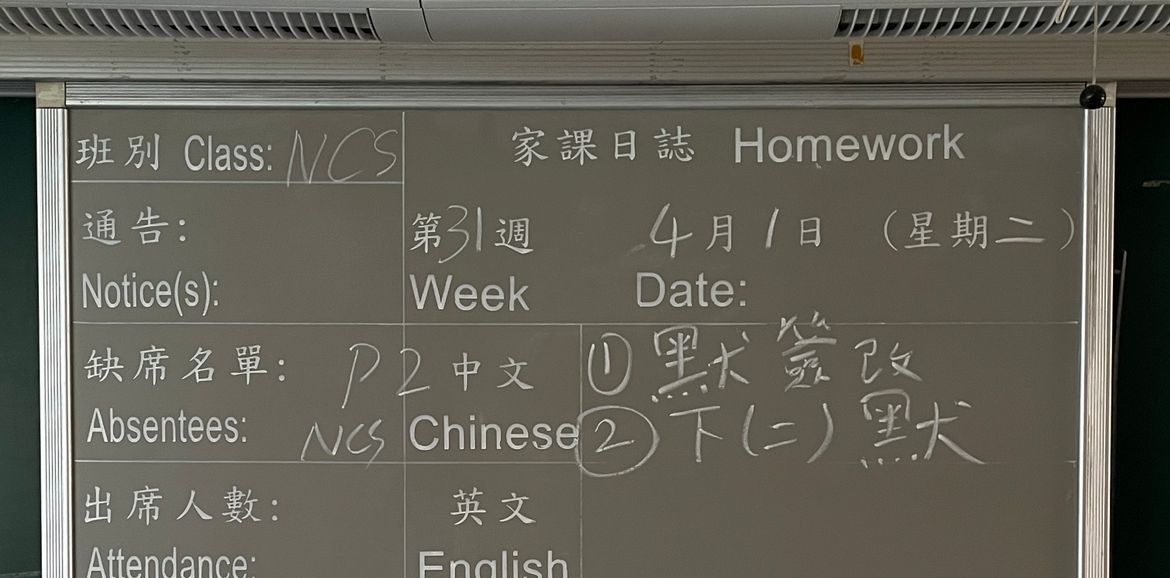 班別 Class: NCS
家課日誌 Homework
通告:
Notice(s):
第31週 4月1日 (星期二)
Week Date:
缺席名單: P2
Absentees: NCS
中文 ①默簽改
Chinese ②下(二)默
出席人數:
Attendance:
英文
English